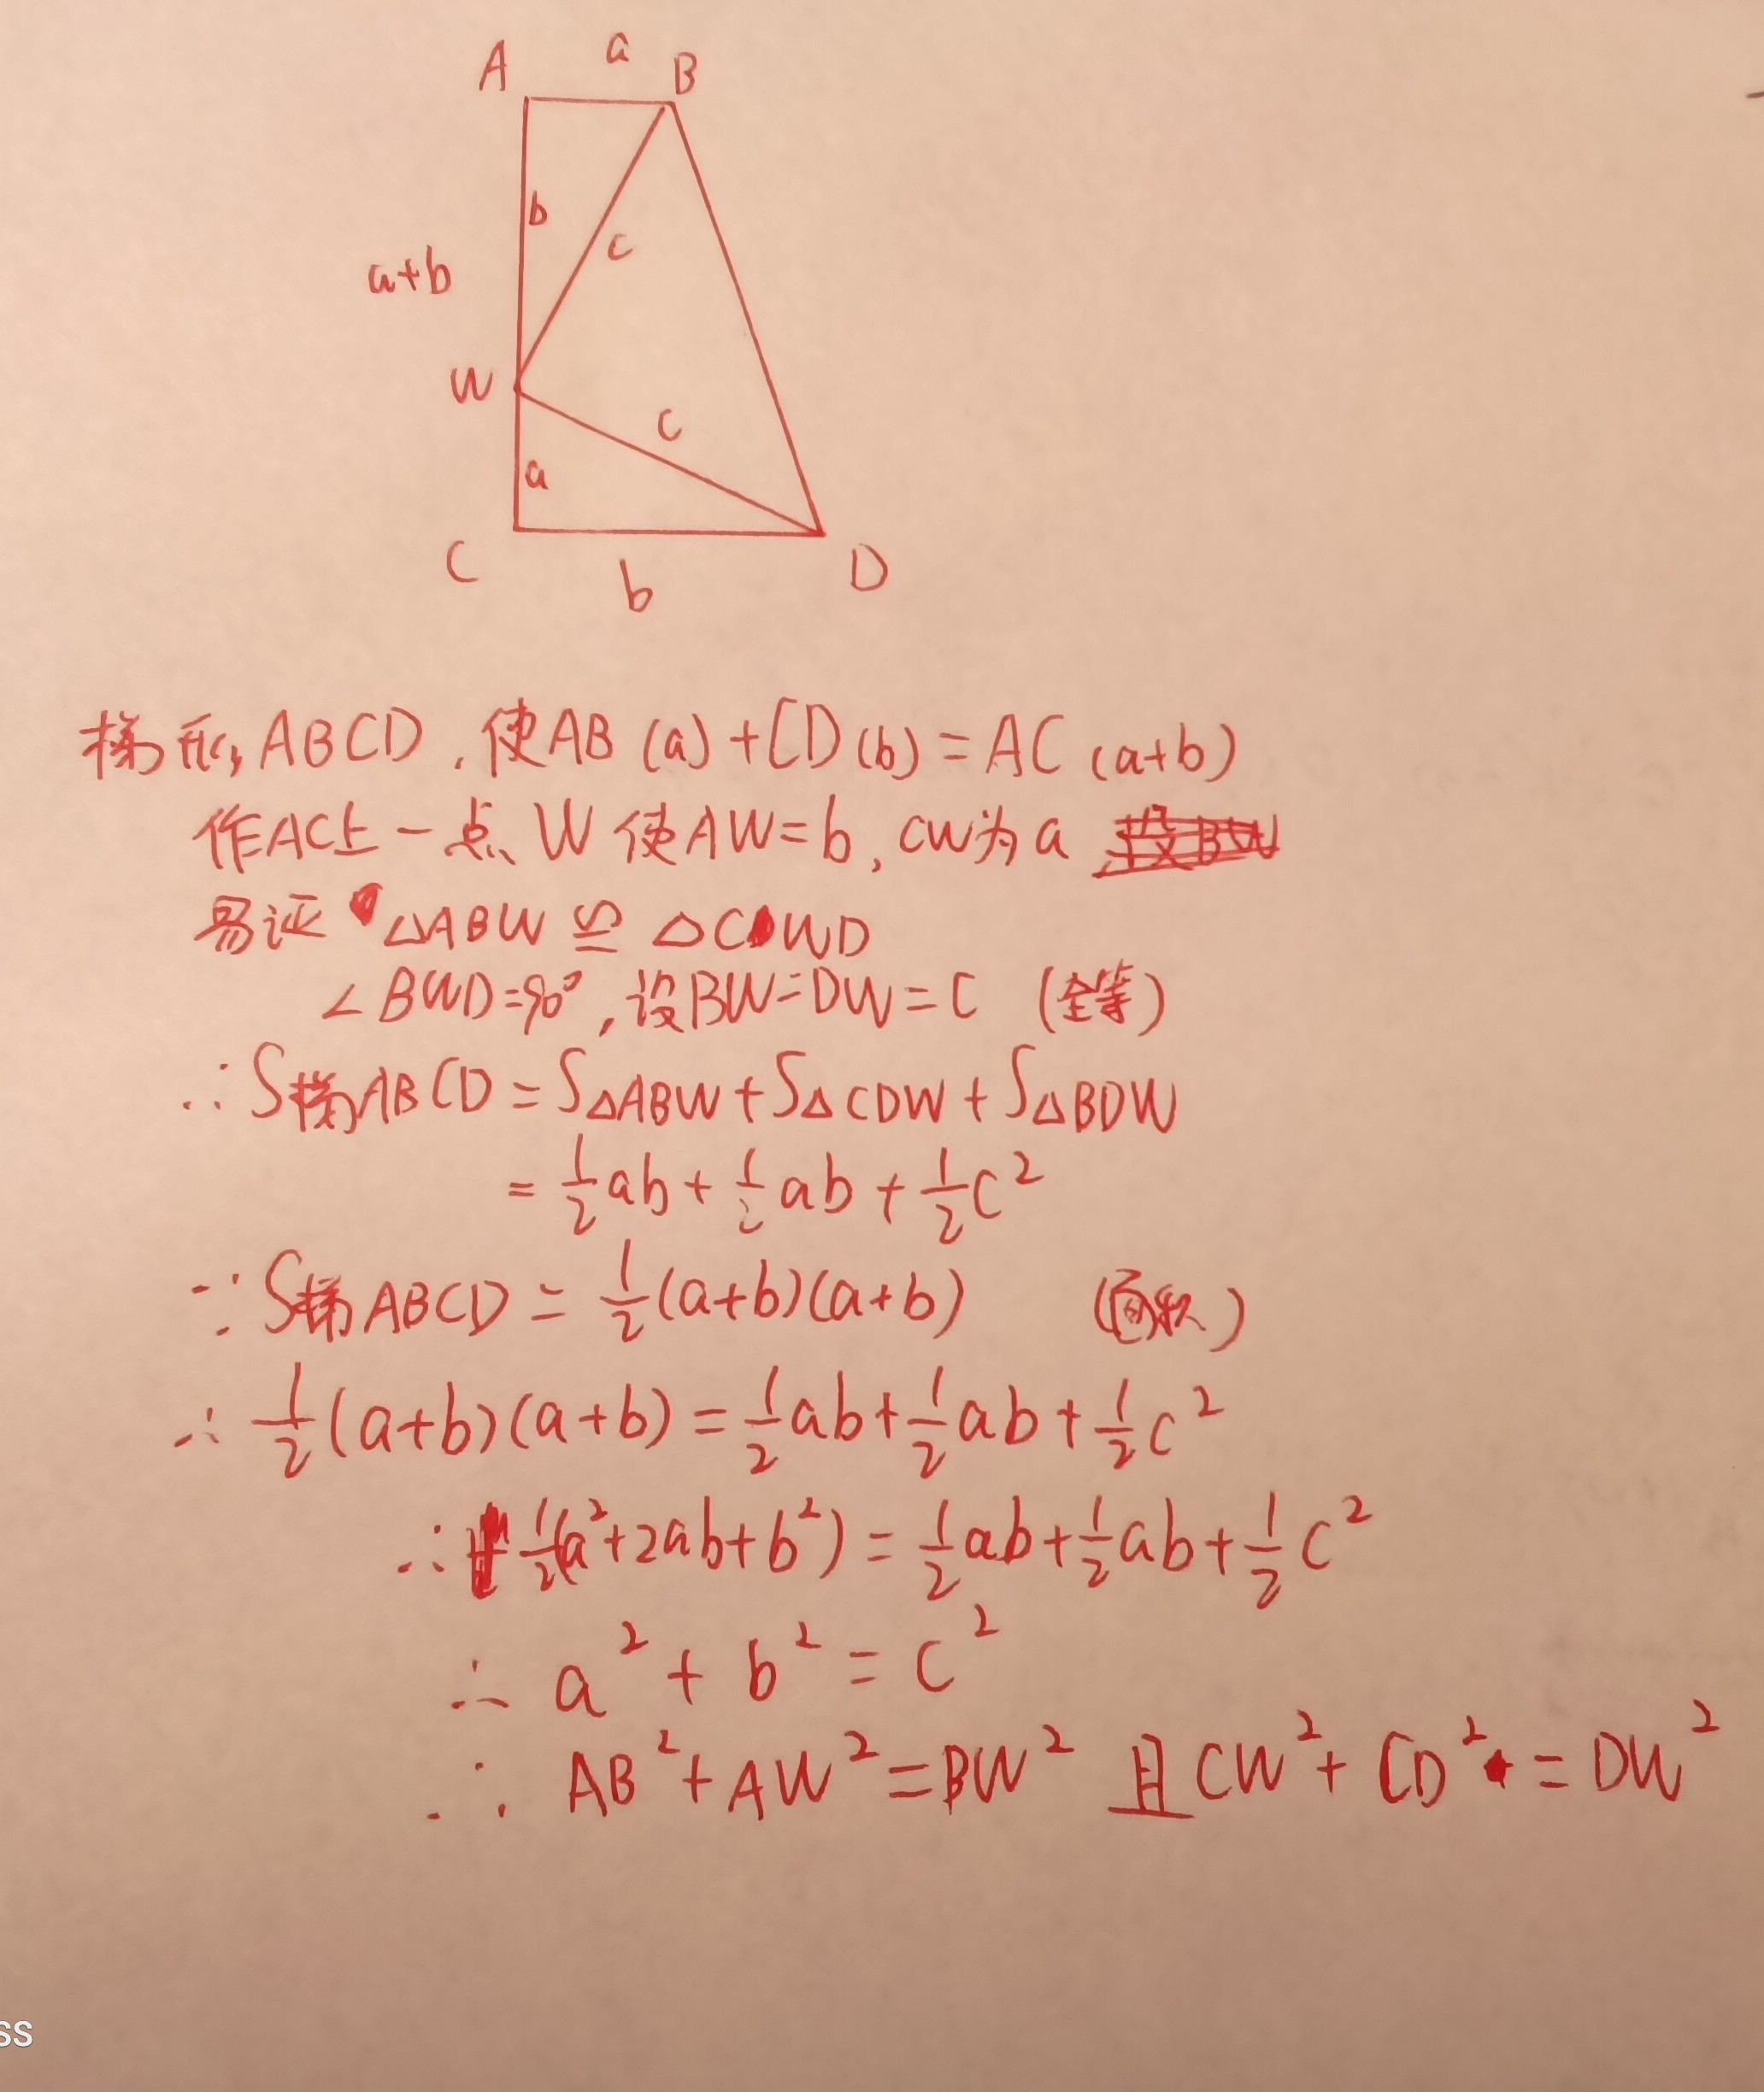 A a B
b
c
a+b
W
c
a
C D
b
梯形ABCD，使AB(a)+CD(b)=AC(a+b)
作AC上一点W使AW=b，CW为a
易证△ABW≌△CWD
∠BWD=90°，设BW=DW=C (全等)
∴S梯ABCD=S△ABW+S△CDW+S△BDW
=½ab+½ab+½c²
∵S梯ABCD=½(a+b)(a+b) (面积)
∴½(a+b)(a+b)=½ab+½ab+½c²
∴½(a²+2ab+b²)=½ab+½ab+½c²
∴a²+b²=c²
∴AB²+AW²=BW²且CW²+CD²=DW²
ss